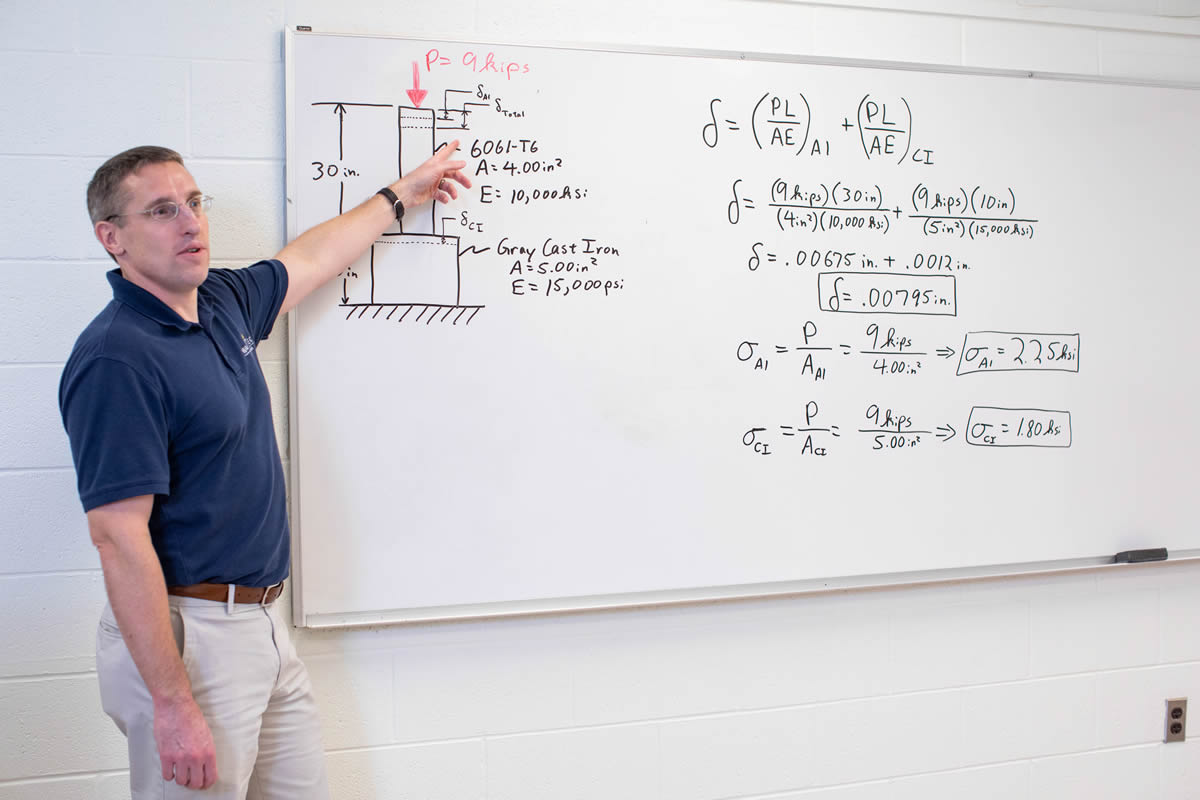 P= 9 kips
δAl
δTotal
30 in.
6061-T6
A= 4.00in²
E= 10,000 ksi
δCI
Gray Cast Iron
A= 5.00in²
E= 15,000psi
in
δ= (PL/AE)Al + (PL/AE)CI
δ= (9 kips)(30in)/(4in²)(10,000 ksi) + (9 kips)(10in)/(5in²)(15,000 ksi)
δ= .00675 in. + .0012 in.
δ= .00795in.
σAl = P/AAl = 9 kips/4.00in² ⇒ σAl = 2.25ksi
σCI = P/ACI = 9 kips/5.00in² ⇒ σCI = 1.80 ksi